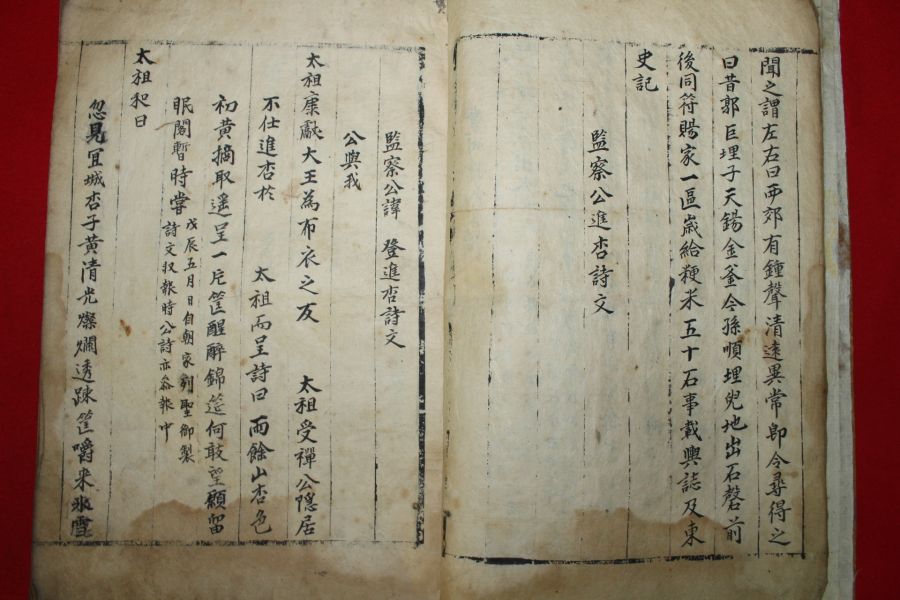 聞之謂左右曰西郊有鐘聲清遠異常卽令尋得之
曰昔郭巨埋子天錫金釜今孫順埋兒地出石磬前
後同符賜家一區歲給粳米五十石事載輿誌及東
史記
監察公進杏詩文
監察公諱 登進杏詩文
公與我
太祖康獻大王爲布衣之友 太祖受禪公隱居
不仕進杏於 太祖而呈詩曰 雨餘山杏色
初黃摘取遥呈一片筐醒醉錦筵何敢望願留
眠閣暫時嘗
戊辰五月日自朝家列聖御製
詩文収報時公詩亦叅報中
太祖和曰
忽見冝城杏子黃清光燦爛透踈筐嚼来氷雪